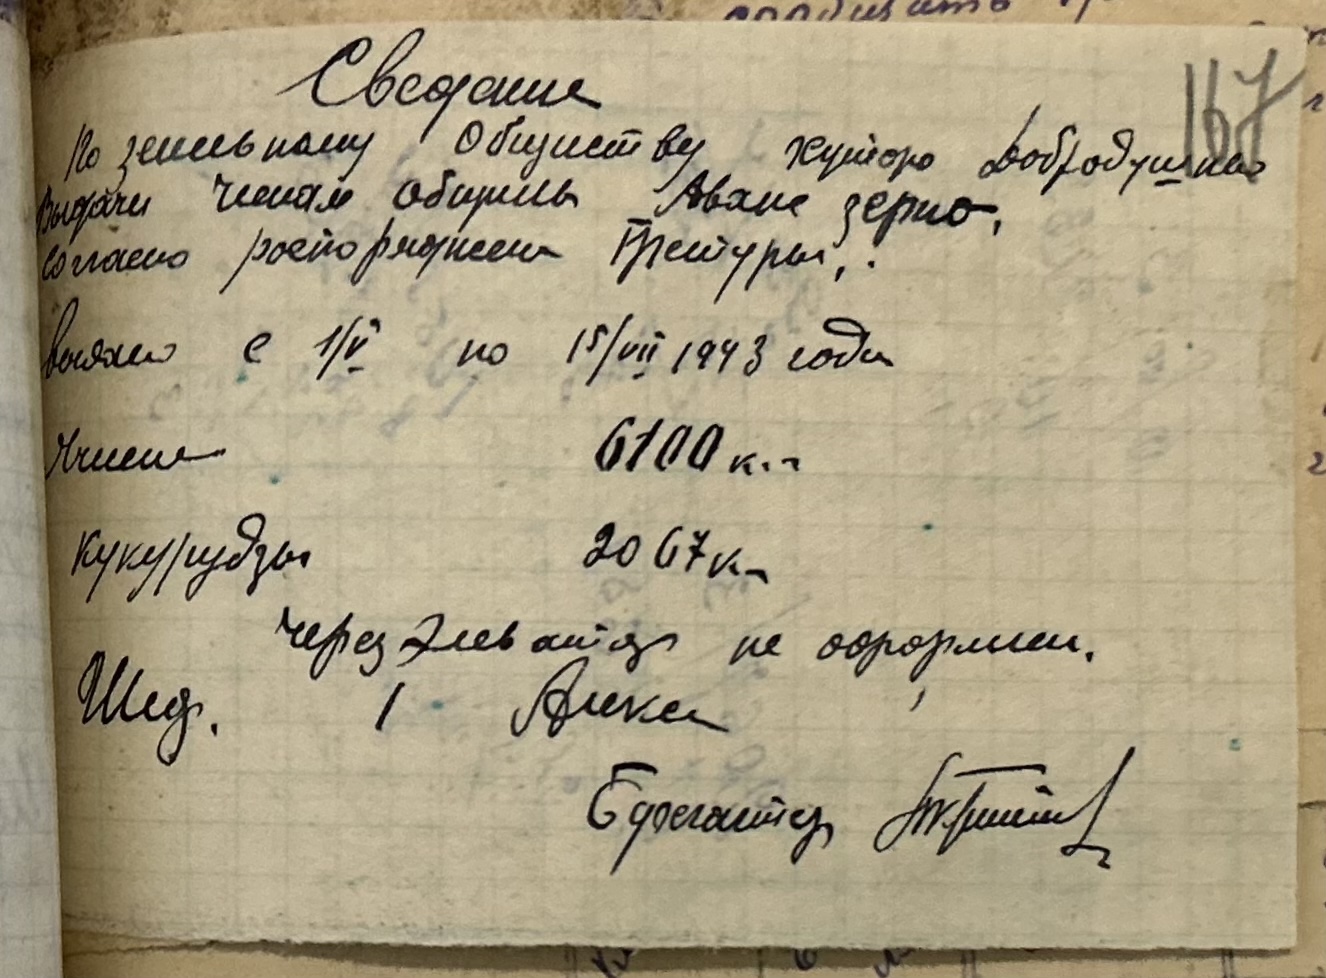 167
Сведение
По земельному Обществу хутора Добродушно
Выдачи Членам общины Аванс зерно,
согласно роспоряжени Претуры,
взято с 1/V по 15/VII 1943 годи
Ячмень 6100 к.г
Кукурудзы 2067 кг
через Элеватор не оформлен.
Шеф. Алексе
Бухгалтер